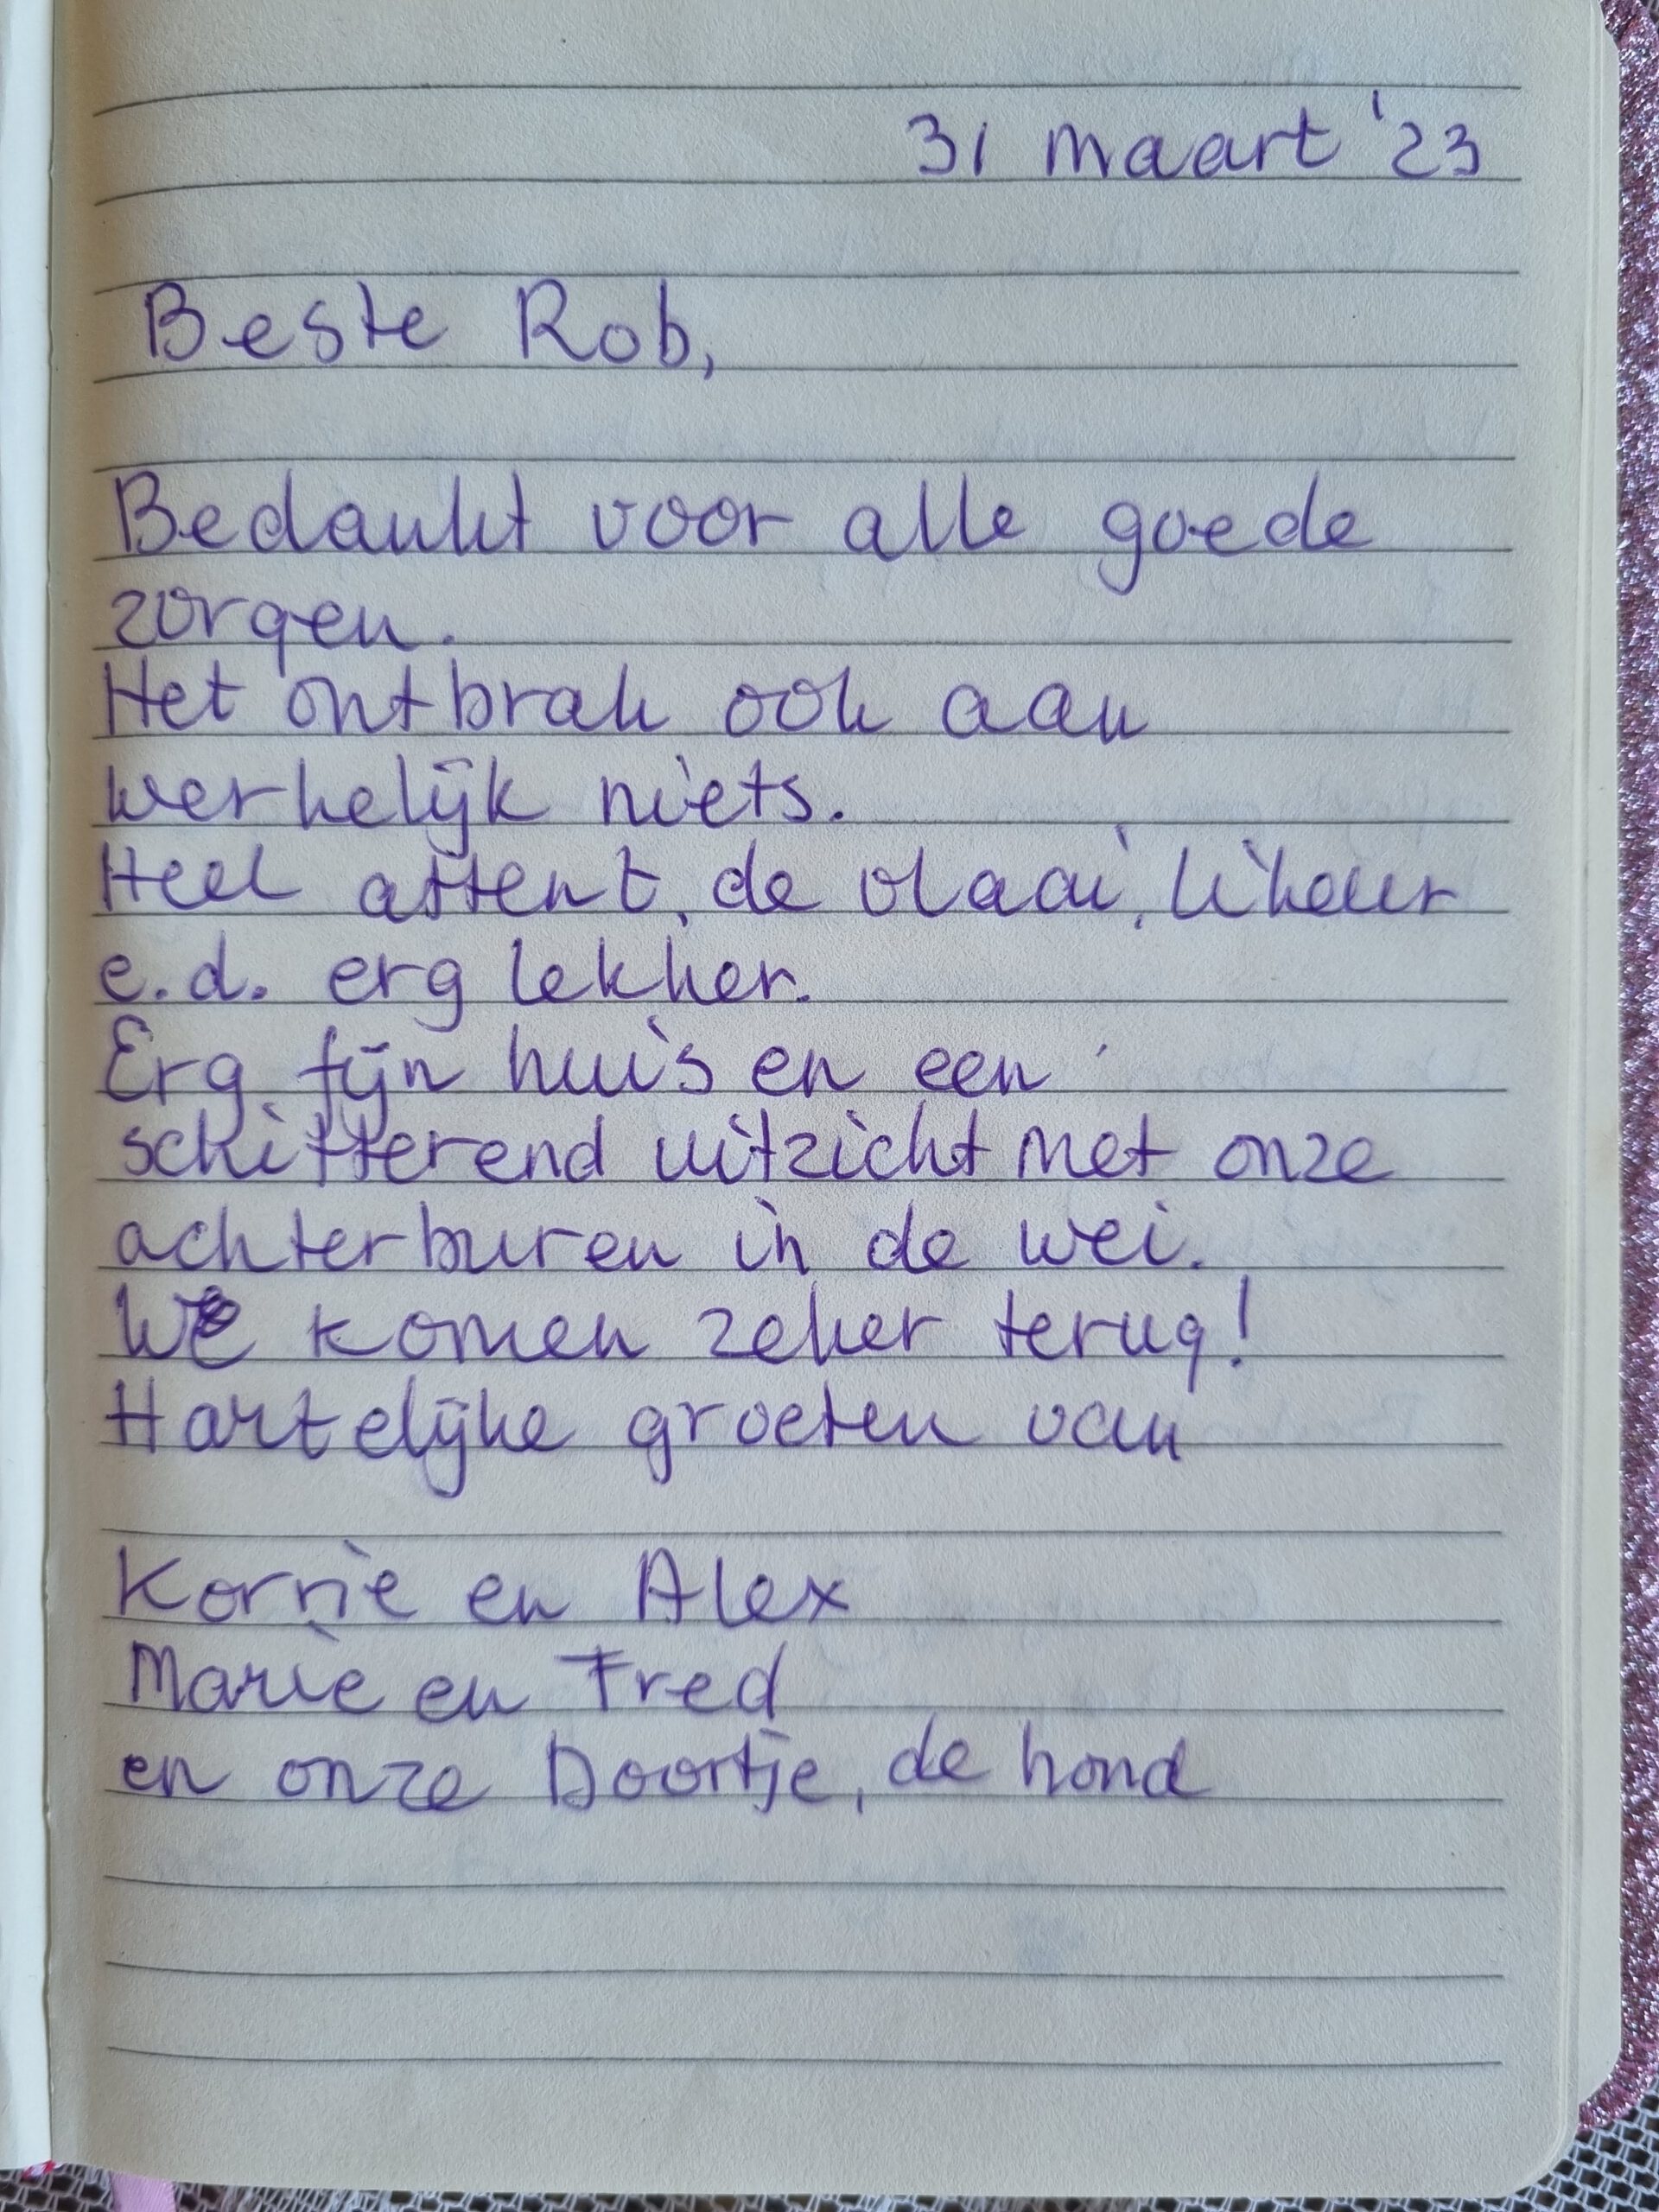 31 maart '23
Beste Rob,
Bedankt voor alle goede
zorgen.
Het ontbrak ook aan
werkelijk niets.
Heel attent, de vlaai, likeur
e.d. erg lekker.
Erg fijn huis en een
schitterend uitzicht met onze
achterburen in de wei.
We komen zeker terug!
Hartelijke groeten van
Korrie en Alex
Marie en Fred
en onze Doortje, de hond